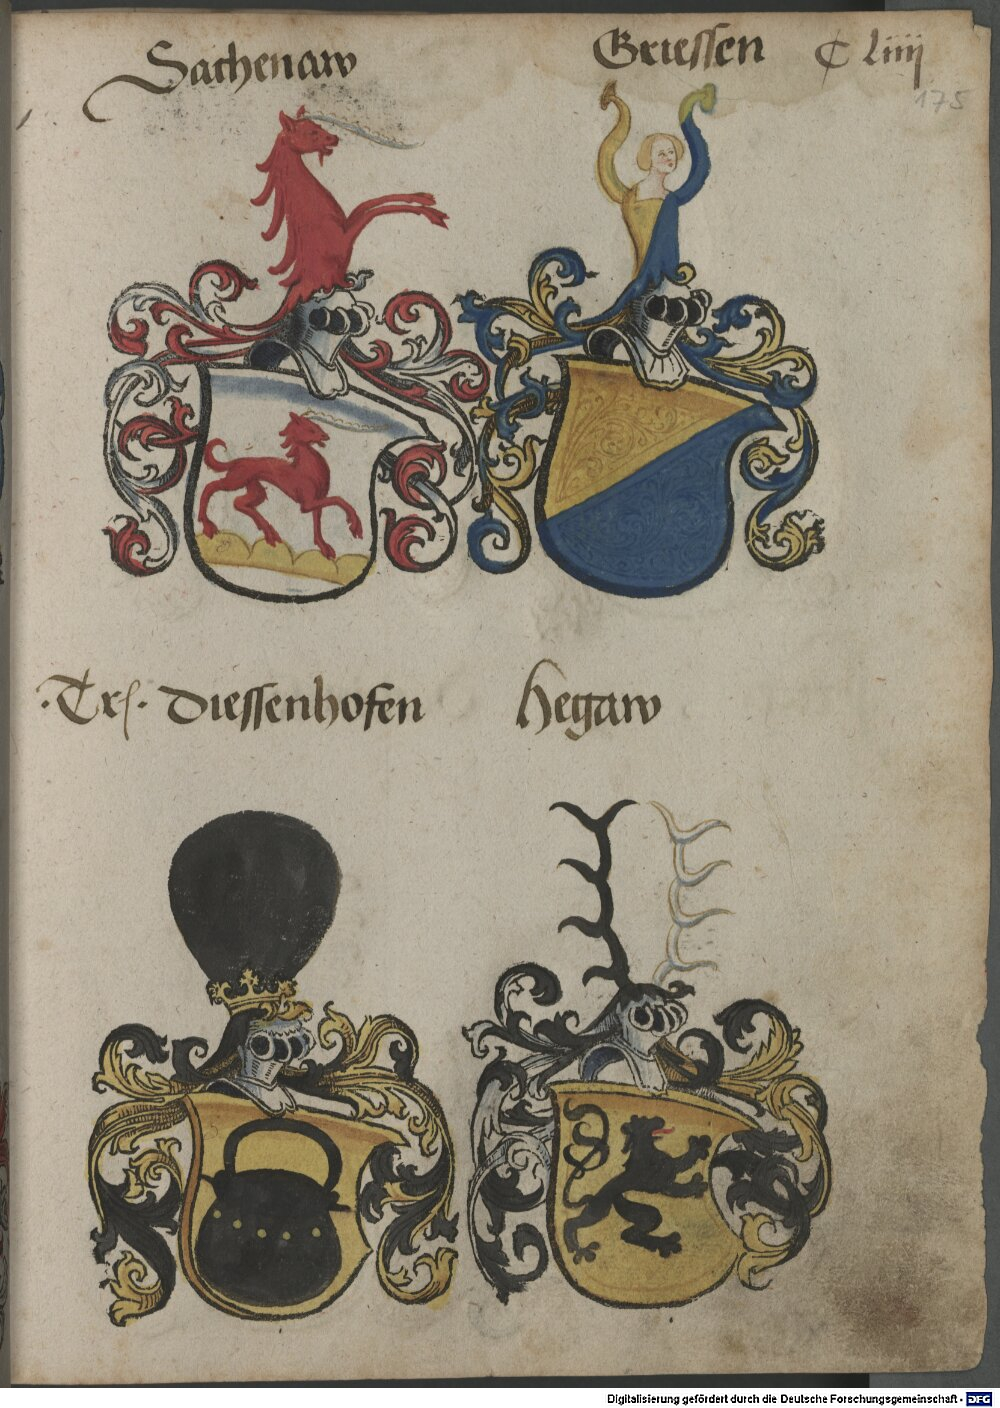 Sachenaw
Griessen
C Liiij
175
·Trs· Diessenhofen
Hegaw
Digitalisierung gefördert durch die Deutsche Forschungsgemeinschaft - DFG